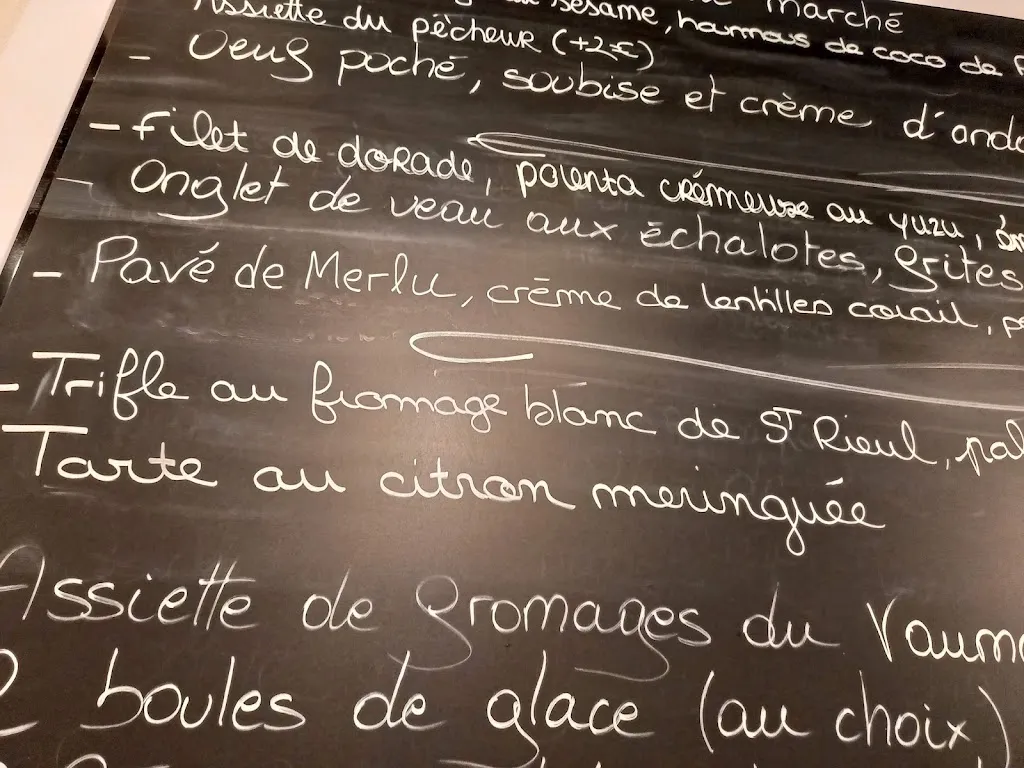 marché
sésame, houmous de coco de
Assiette du pêcheur (+2€)
- Oeuf poché, soubise et crème d'ando
- Filet de dorade, polenta crémeuse au yuzu,
- Onglet de veau aux échalotes, frites
- Pavé de Merlu, crème de lentilles corail,
- Trifle au fromage blanc de ST Rieul, pal
Tarte au citron meringuée
Assiette de fromages du Vaum
2 boules de glace (au choix)